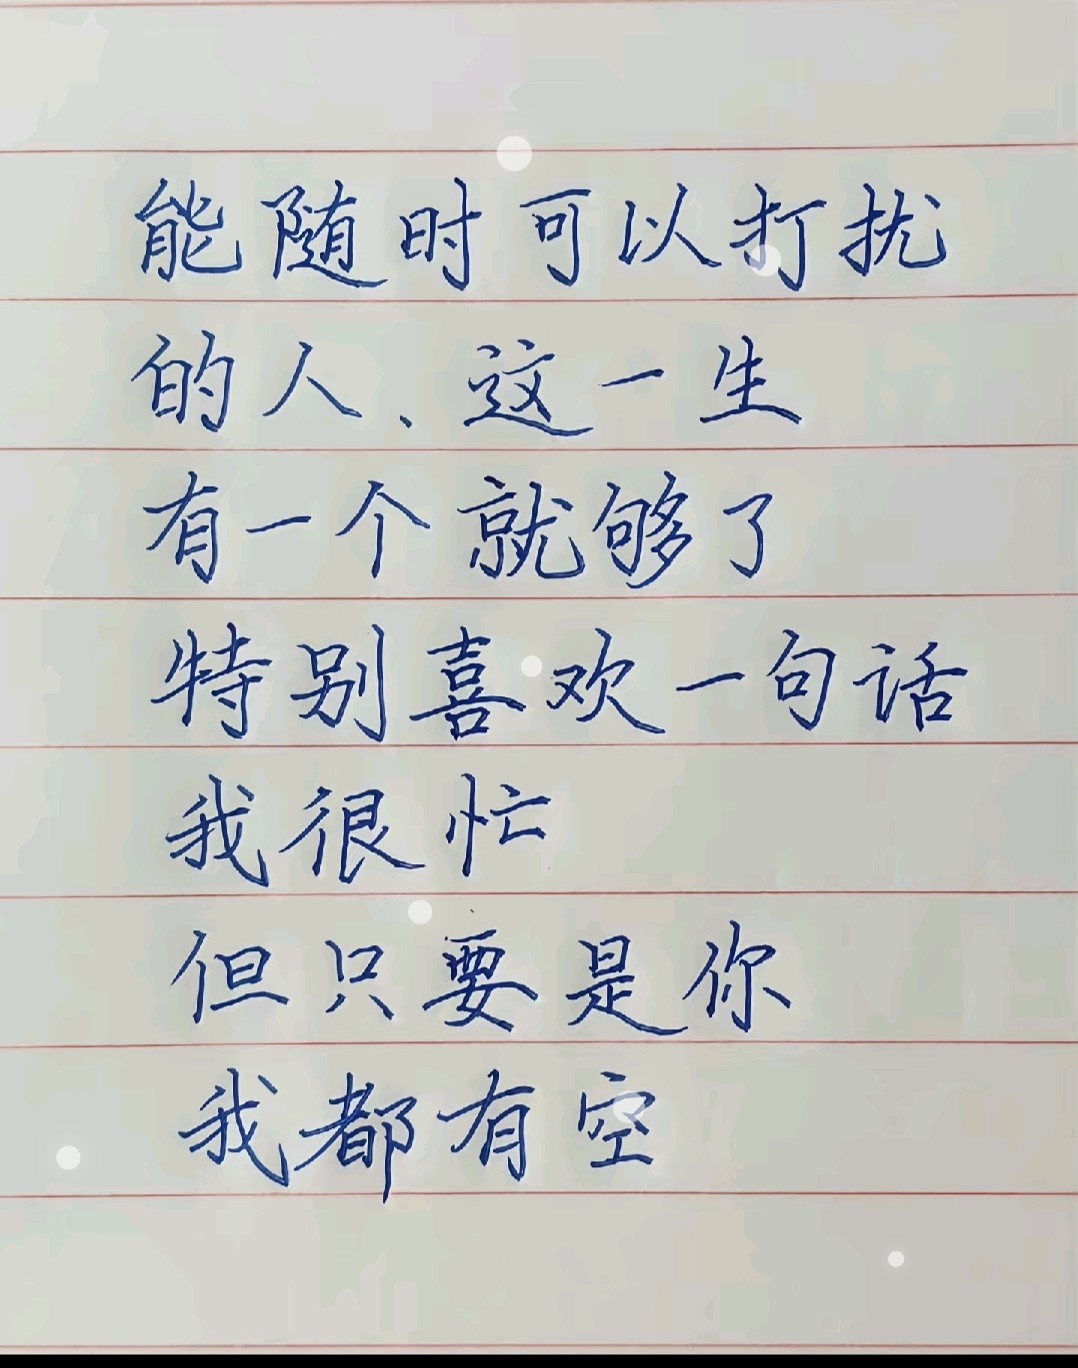 能随时可以打扰
的人、这一生
有一个就够了
特别喜欢一句话
我很忙
但只要是你
我都有空